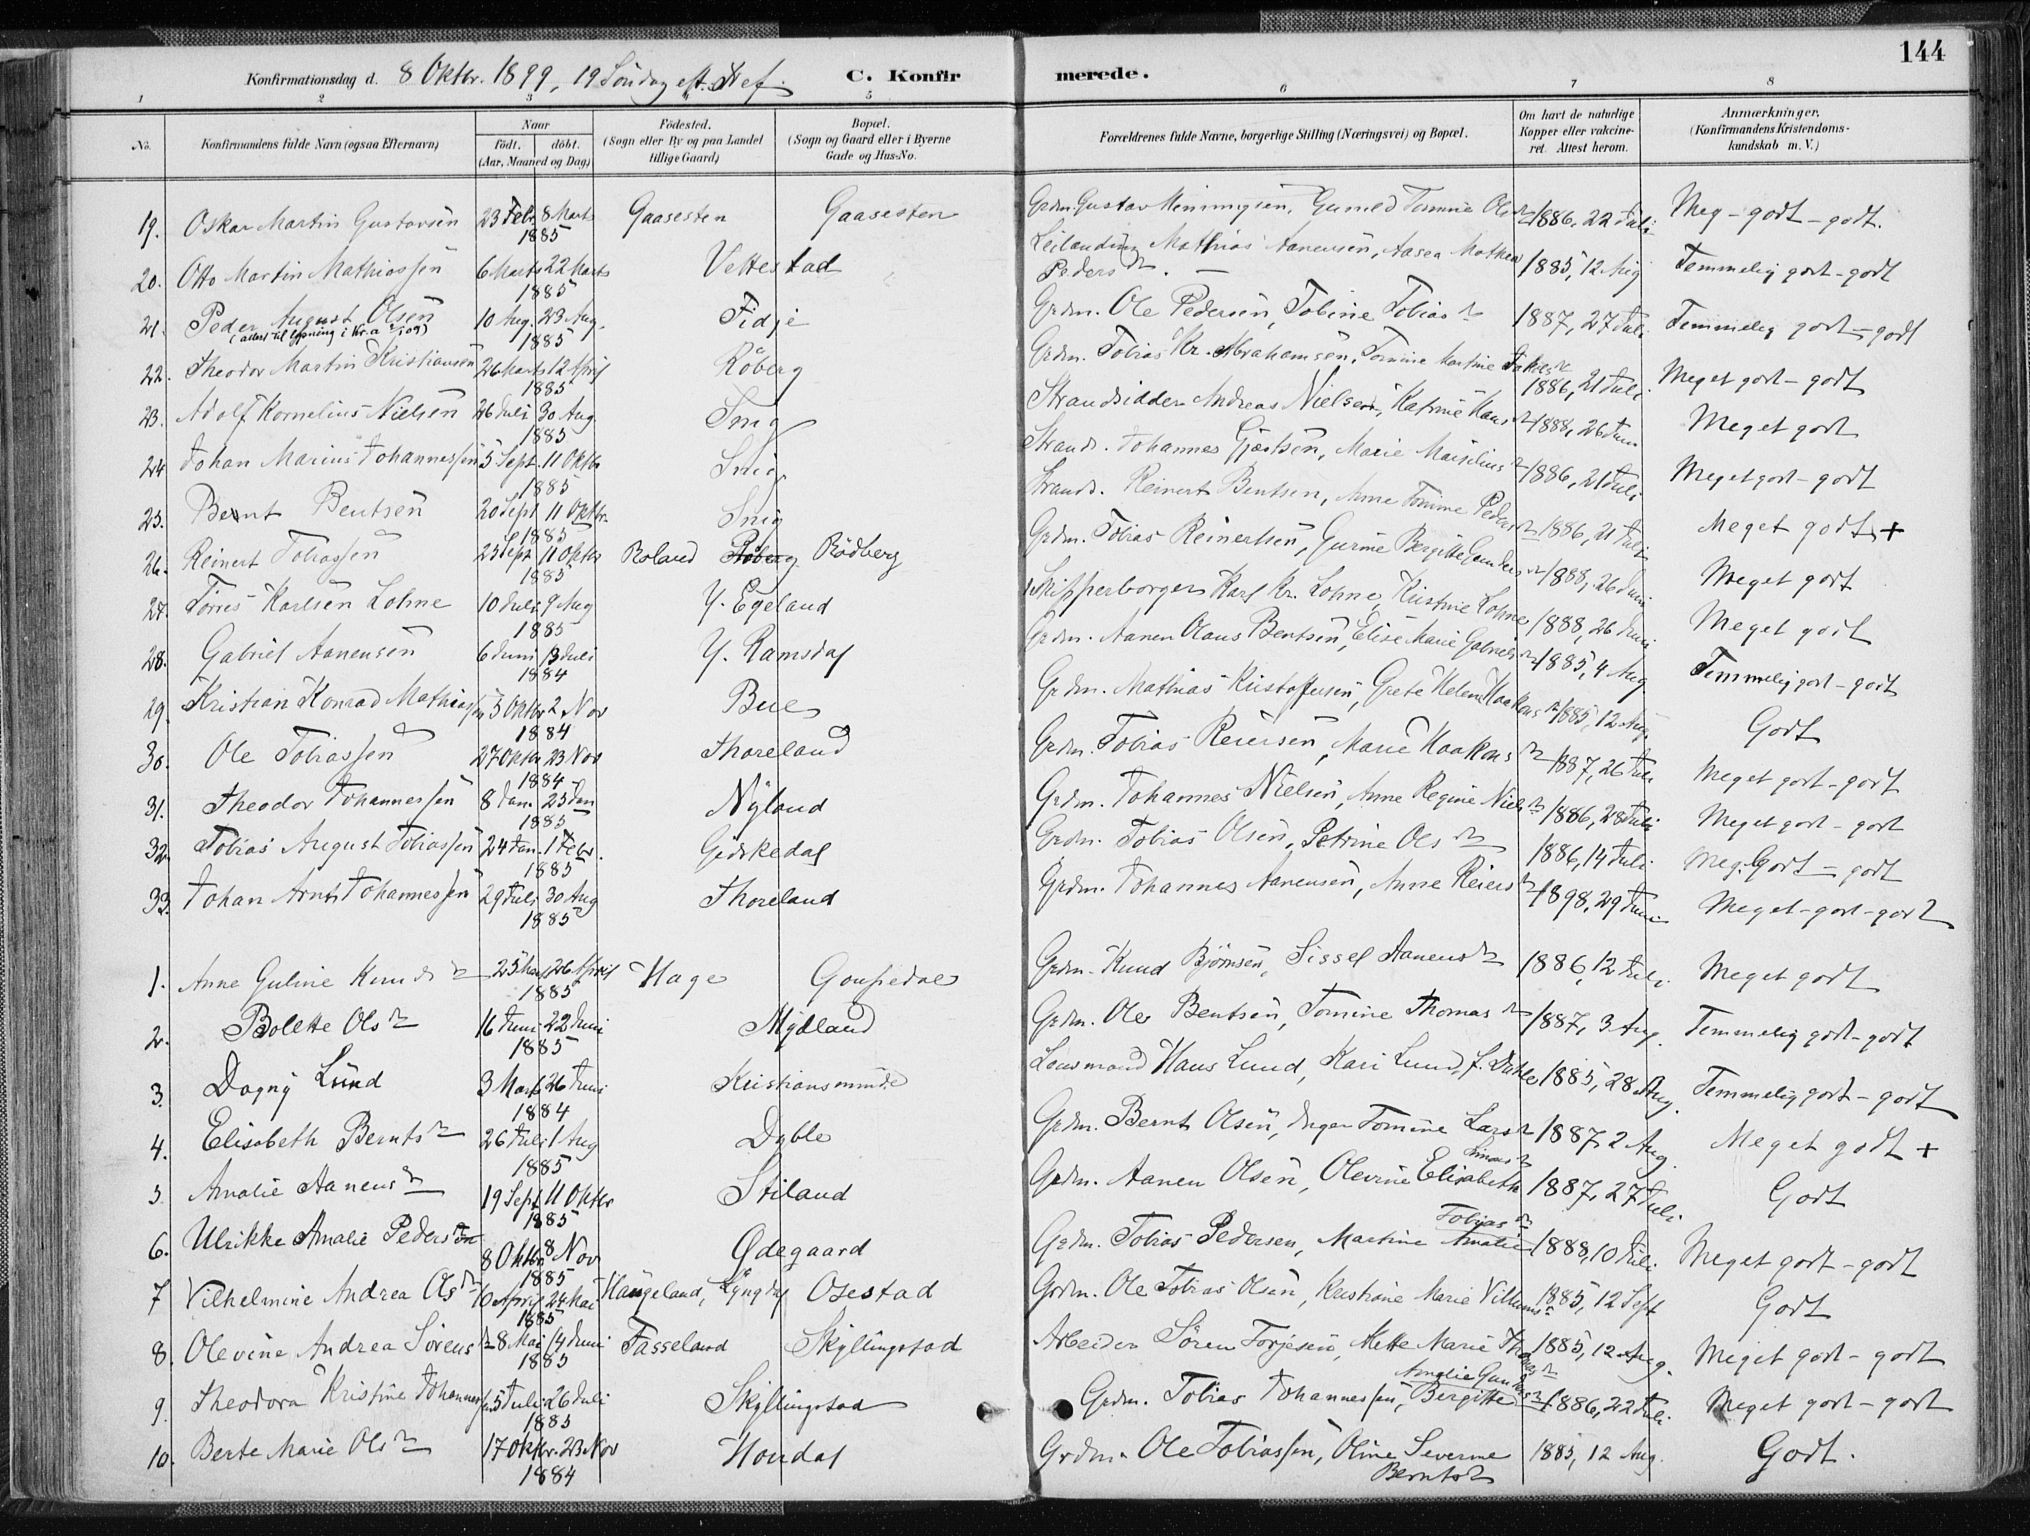 144
Konfirmationsdag d. 8 Oktbr. 1899, 19 Söndag eft. Tref. C. Konfirmerede.
1 2 3 5 6 7 8
No. Konfirmandens fulde Navn (ogsaa Efternavn) Naar født. døbt. (Aar, Maaned og Dag) Fødested. (Sogn eller By og paa Landet tillige Gaard) Bopæl. (Sogn og Gaard eller i Byerne Gade og Hus-No. Forældrenes fulde Navne, borgerlige Stilling (Næringsvei) og Bopæl. Om havt de naturlige Kopper eller vakcineret. Attest herom. Anmærkninger. (Konfirmandens Kristendomskundskab m. V.)
19. Oskar Martin Gustavsen 23 Febr. 8 Marts 1885 Gaasesten Gaasesten Grdm. Gustav Gunild Tomine Olsdr 1886, 22 Juli Meg-godt-godt.
20. Otto Martin Mathiassen 6 Marts 22 Marts 1885 Vettestad Leilænding Mathias Aanensen, Aasea Mathea Pedersdr. 1885, 12 Aug Temmelig godt-godt
21. Peder August Olsen 10 Aug. 23 Aug. 1885 Fidje Grdm. Ole Pedersen, Tobine Tobiasdr 1887, 27 Juli Temmelig godt-godt
(attest til lysning i Kr.a 09)
22. Theodor Martin Kristiansen 26 Marts 12 April 1885 Röberg Grdm. Tobias Kr. Abrahamsen, Tomine Martine 1886, 21 Juli Meget godt-godt
23. Adolf Kornelius Nielsen 26 Juli 30 Aug. 1885 Snig Strandsidder Andreas Nielsen, Katrine Hansdr 1888, 26 Juni Meget godt
24. Johan Marius Johannessen 5 Sept. 11 Oktbr 1885 Snig Strands. Johannes Gjertsen, Marie 1886, 21 Juli Meget godt-godt
25. Bernt Bentsen 20 Sept 11 Oktbr. 1885 Snig Strands. Reinert Bentsen, Anne Tomine Pedersdr 1886, 21 Juli Meget godt +
26. Reinert Tobiassen 23 Sept 11 Oktbr 1885 Roland Rödberg Grdm. Tobias Reinertsen, Gurine Bergitte Gundersdr 1888, 26 Juni Meget godt
27. Tørres Karlsen Lohne 10 Juli 9 Aug 1885 Y. Egeland Skipperborger Karl Kr. Lohne, Kistine Lohne 1888, 26 Juni Meget godt
28. Gabriel Aanensen 6 Juni 13 Juli 1884 Y. Ramsdal Grdm. Aanen Olaus Bentsen, Elise Marie Gabrielsdr 1885, 4 Aug. Temmelig godt-godt
29. Kristian Konrad Mathiassen 5 Oktbr 2 Nov 1884 Bue Grdm. Mathias Kristoffersen, Grete Helene Haakonsdr 1885, 12 Aug. Godt
30. Ole Tobiassen 27 Oktbr 23 Nov 1884 Thoreland Grdm. Tobias Reiersen, Marie Haakonsdr 1887, 26 Juli Meget godt-godt
31. Theodor Johannessen 8 Jan. 25 Jan 1885 Nyland Grdm. Johannes Nielsen, Anne Regine Nielsdr 1886, 28 Juli Meget godt-godt
32. Tobias August Tobiassen 24 Jan. 1 Febr. 1885 Gidskedal Grdm. Tobias Olsen, Petrine Olsdr 1886, 14 Juli Meg. Godt-godt
33. Johan Arnt Johannessen 29 Juli 30 Aug 1885 Thoreland Grdm. Johannes Aanensen, Anne Reiersdr 1898, 29 Juni Meget-godt-godt
1. Anne Guline Knudsdr 25 Marts 26 April 1885 Hage Grdm. Knud Bjørnsen, Sissel Aanensdr 1886, 12 Juli Meget godt
2. Bolette Olsdr 16 Juni 22 Juni 1885 Mydland Grdm. Ole Bentsen, Tomine Thomasdr 1887, 3 Aug. Temmelig godt-godt
3. Dagny Lund 3 Marts 26 Juni 1884 Kristiansminde Lensmand Hans Lund, Kari Lund, f. Dahle 1885, 28 Aug. Temmelig godt-godt
4. Elisabeth Berntsdr 26 Juli 1 Aug 1885 Dyble Grdm. Bernt Olsen, Inger Tomine Larsdr 1887 2 Aug. Meget godt +
5. Amalie Aanensdr 19 Sept 11 Oktbr 1885 Stiland Grdm. Aanen Olsen, Olevine Elisabeth Simonsdr 1887, 27 Juli Godt
6. Ulrikke Amalie Pedersen 8 Oktbr 8 Nov 1885 Ødegaard Grdm. Tobias Pedersen, Martine Amalie Tobiasdr 1888, 10 Juli Meget godt-godt
7 Vilhelmine Andrea Olsdr 10 April 24 Mai 1885 Haugeland, Lyngdal Osestad Grdm. Ole Tobias Olsen, Kristiane Marie Villumsdr 1885, 12 Sept Godt
8. Olevine Andrea Sörensdr 8 Mai 14 Juni 1885 Tasseland Skyllingstad Arbeider Sören Torjesen, Mette Marie Thomasdr 1885, 12 Aug. Meget godt-godt
9. Theodora Kristine Johannessen 5 Juli 26 Juli 1885 Skyllingstad Grdm. Tobias Johannessen, Bergitte Amalie 1886, 22 Juli Meget godt-godt
10. Berte Marie Olsdr 17 Oktbr. 23 Nov 1884 Houdal Grdm. Ole Tobiassen, Oline Severine Berntsdr 1885, 12 Aug. Godt.